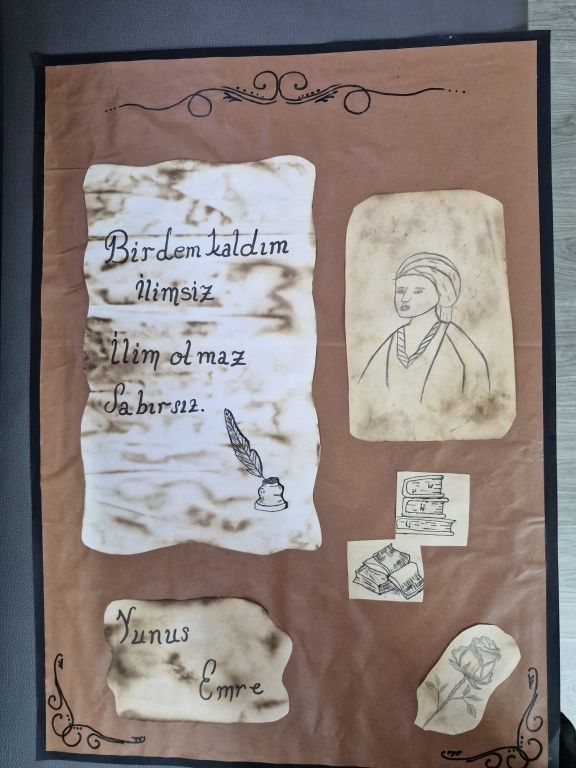 Bir dem kaldım
İlimsiz
İlim olmaz
Sabırsız.
Yunus
Emre